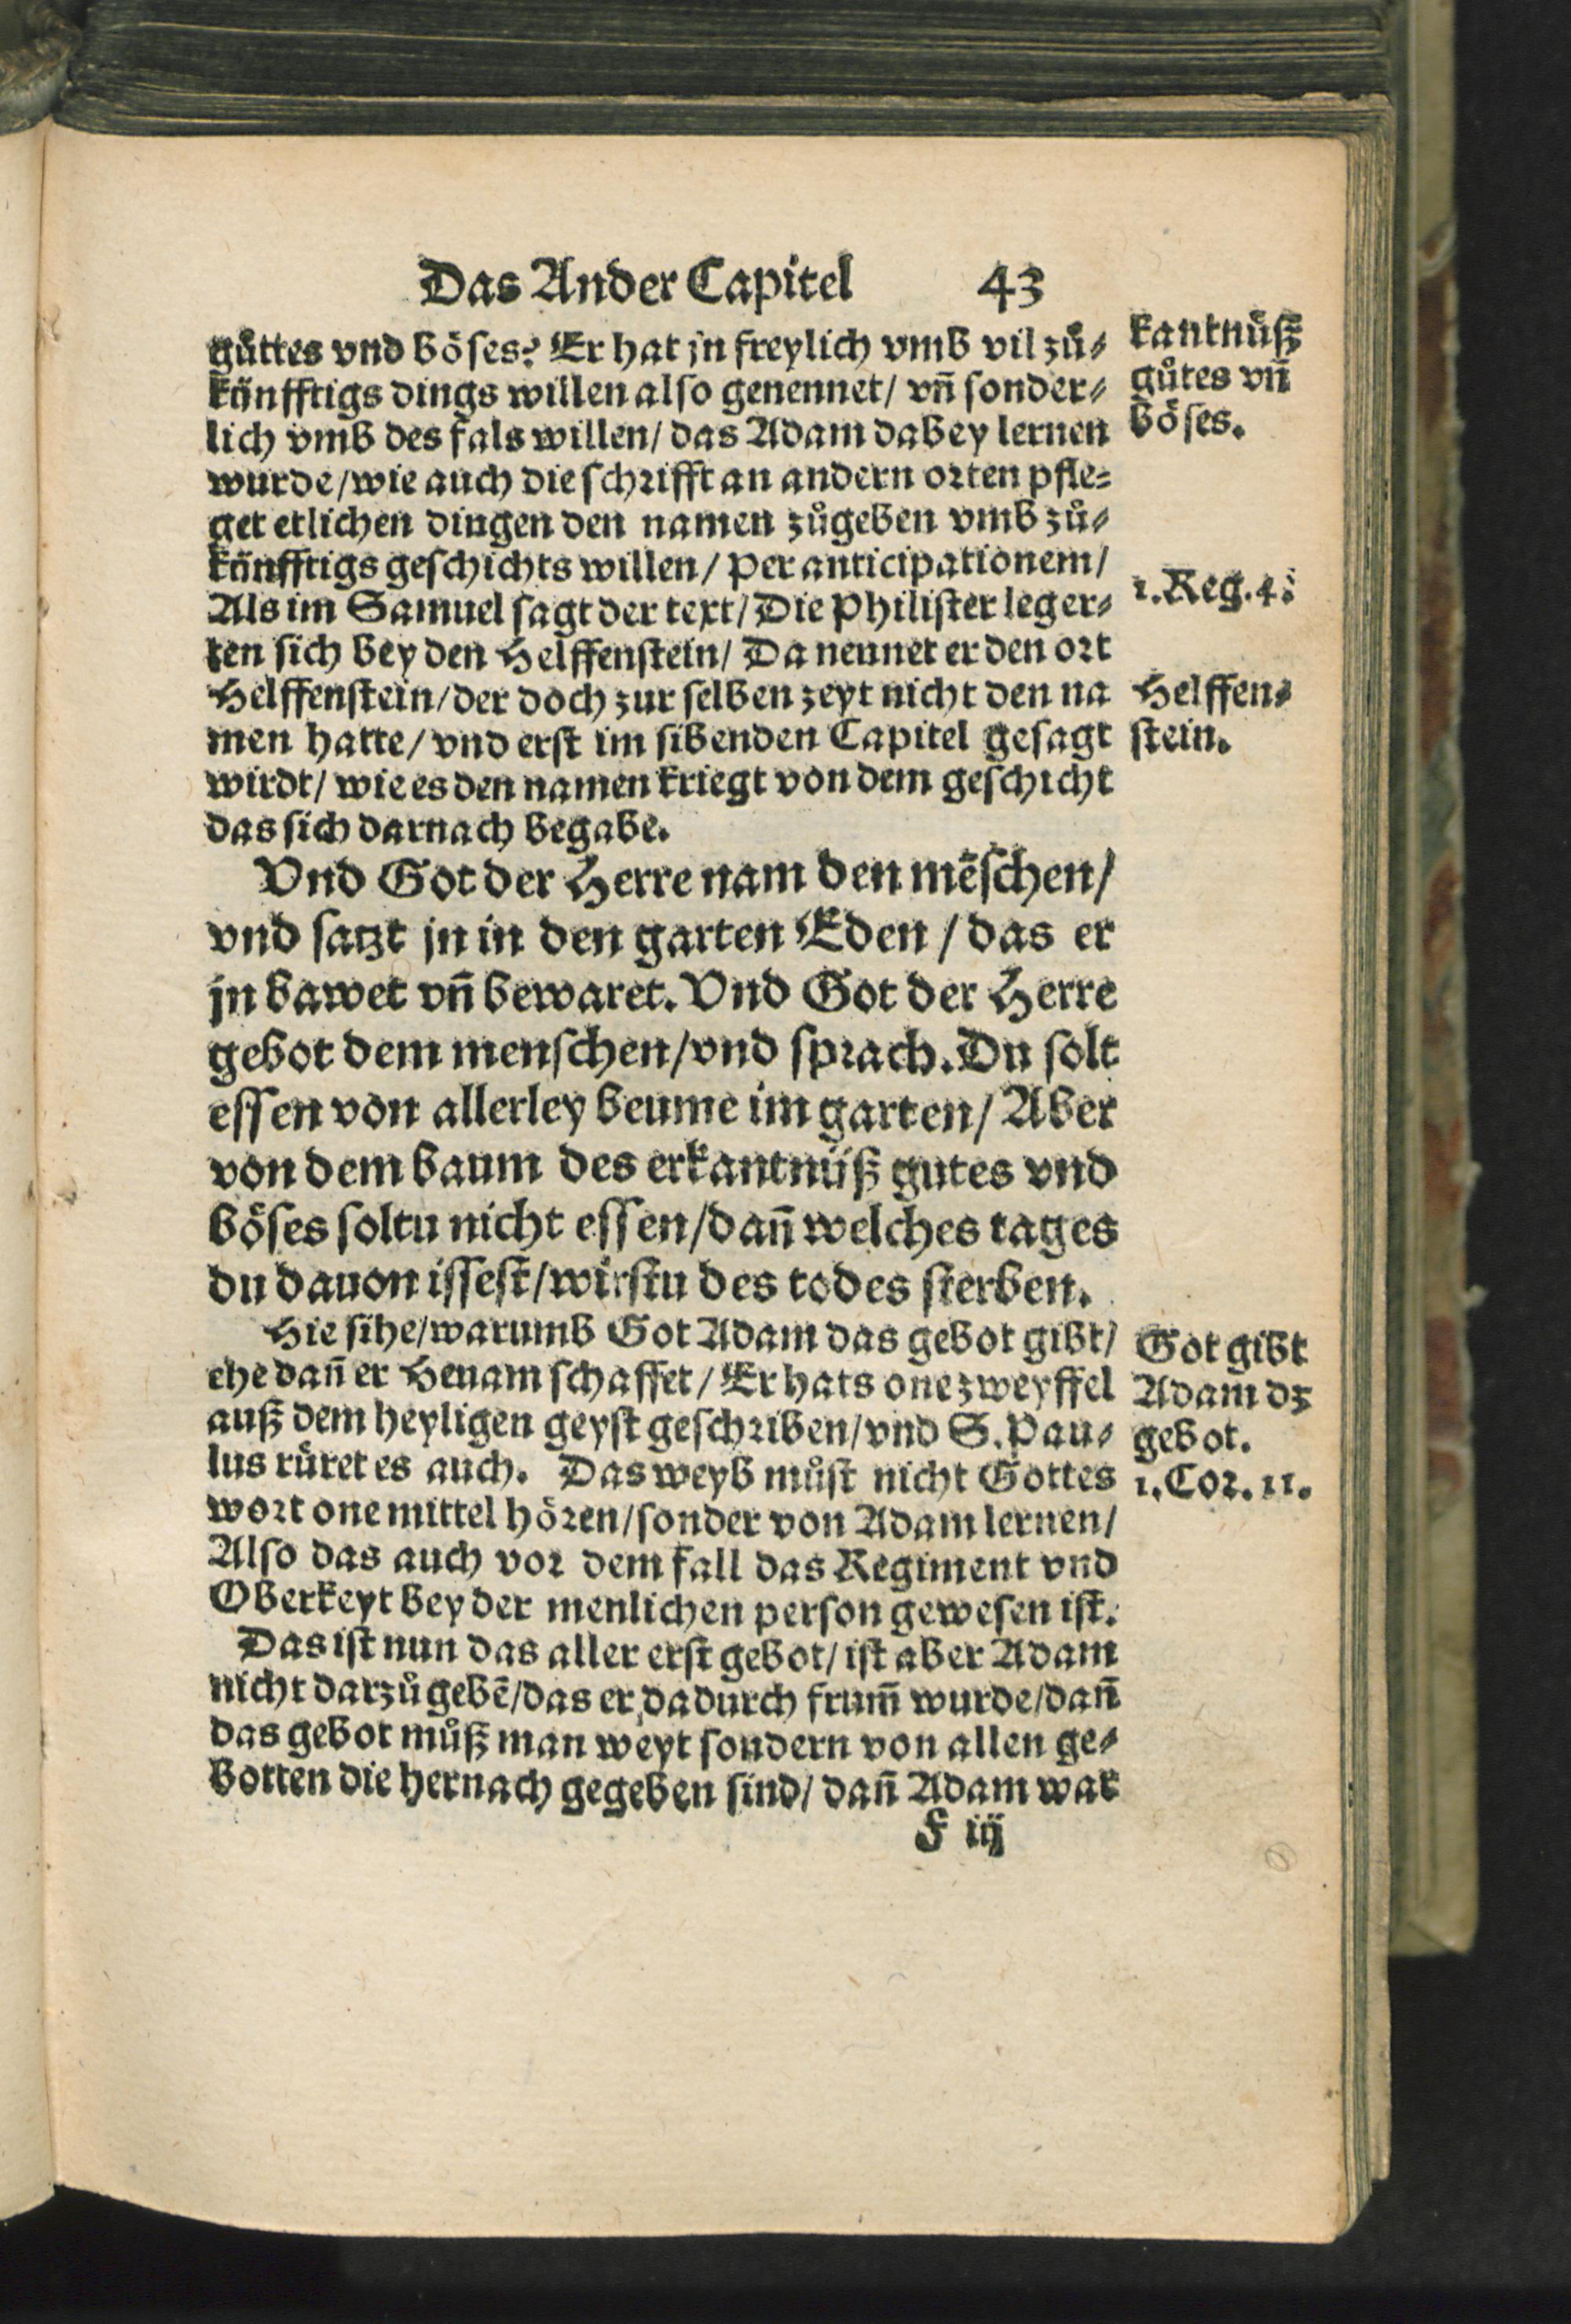 Das Ander Capitel 43
gůttes vnd böses? Er hat jn freylich vmb vil zů⸗
könfftigs dings willen also genennet/ vn̄ sonder⸗
lich vmb des fals willen/ das Adam dabey lernen
wurde/wie auch die schrifft an andern orten pfle⸗
get etlichen dingen den namen zůgeben vmb zů⸗
könfftigs geschichts willen/ per anticipationem/
Als im Samuel sagt der text/ Die Philister leger⸗
ten sich bey den Helffenstein/ Da nennet er den ort
Helffenstein/der doch zur selben zeyt nicht den na
men hatte/ vnd erst im sibenden Capitel gesagt
wirdt/ wie es den namen kriegt von dem geschicht
das sich darnach begabe.
Vnd Got der Herre nam den mēschen/
vnd satzt jn in den garten Eden / das er
jn bawet vn̄ bewaret. Vnd Got der Herre
gebot dem menschen/vnd sprach. Du solt
essen von allerley beume im garten/ Aber
von dem baum des erkantnüß gutes vnd
böses soltu nicht essen/dan̄ welches tages
du dauon issest/wirstu des todes sterben.
Hie sihe/warumb Got Adam das gebot gibt/
ehe dan̄ er Heuam schaffet/ Er hats one zweyffel
auß dem heyligen geyst geschriben/vnd S. Pau⸗
lus rüret es auch. Das weyb můst nicht Gottes
wort one mittel hören/sonder von Adam lernen/
Also das auch vor dem fall das Regiment vnd
Oberkeyt bey der menlichen person gewesen ist.
Das ist nun das aller erst gebot/ ist aber Adam
nicht darzů gebē/das er dadurch frum̄ wurde/dan̄
das gebot můß man weyt sondern von allen ge⸗
botten die hernach gegeben sind/ dan̄ Adam war
F iij
kantnůß
gůtes vn̄
böses.
1. Reg. 4.
Helffen⸗
stein.
Got gibt
Adam dz
gebot.
1. Cor. 11.